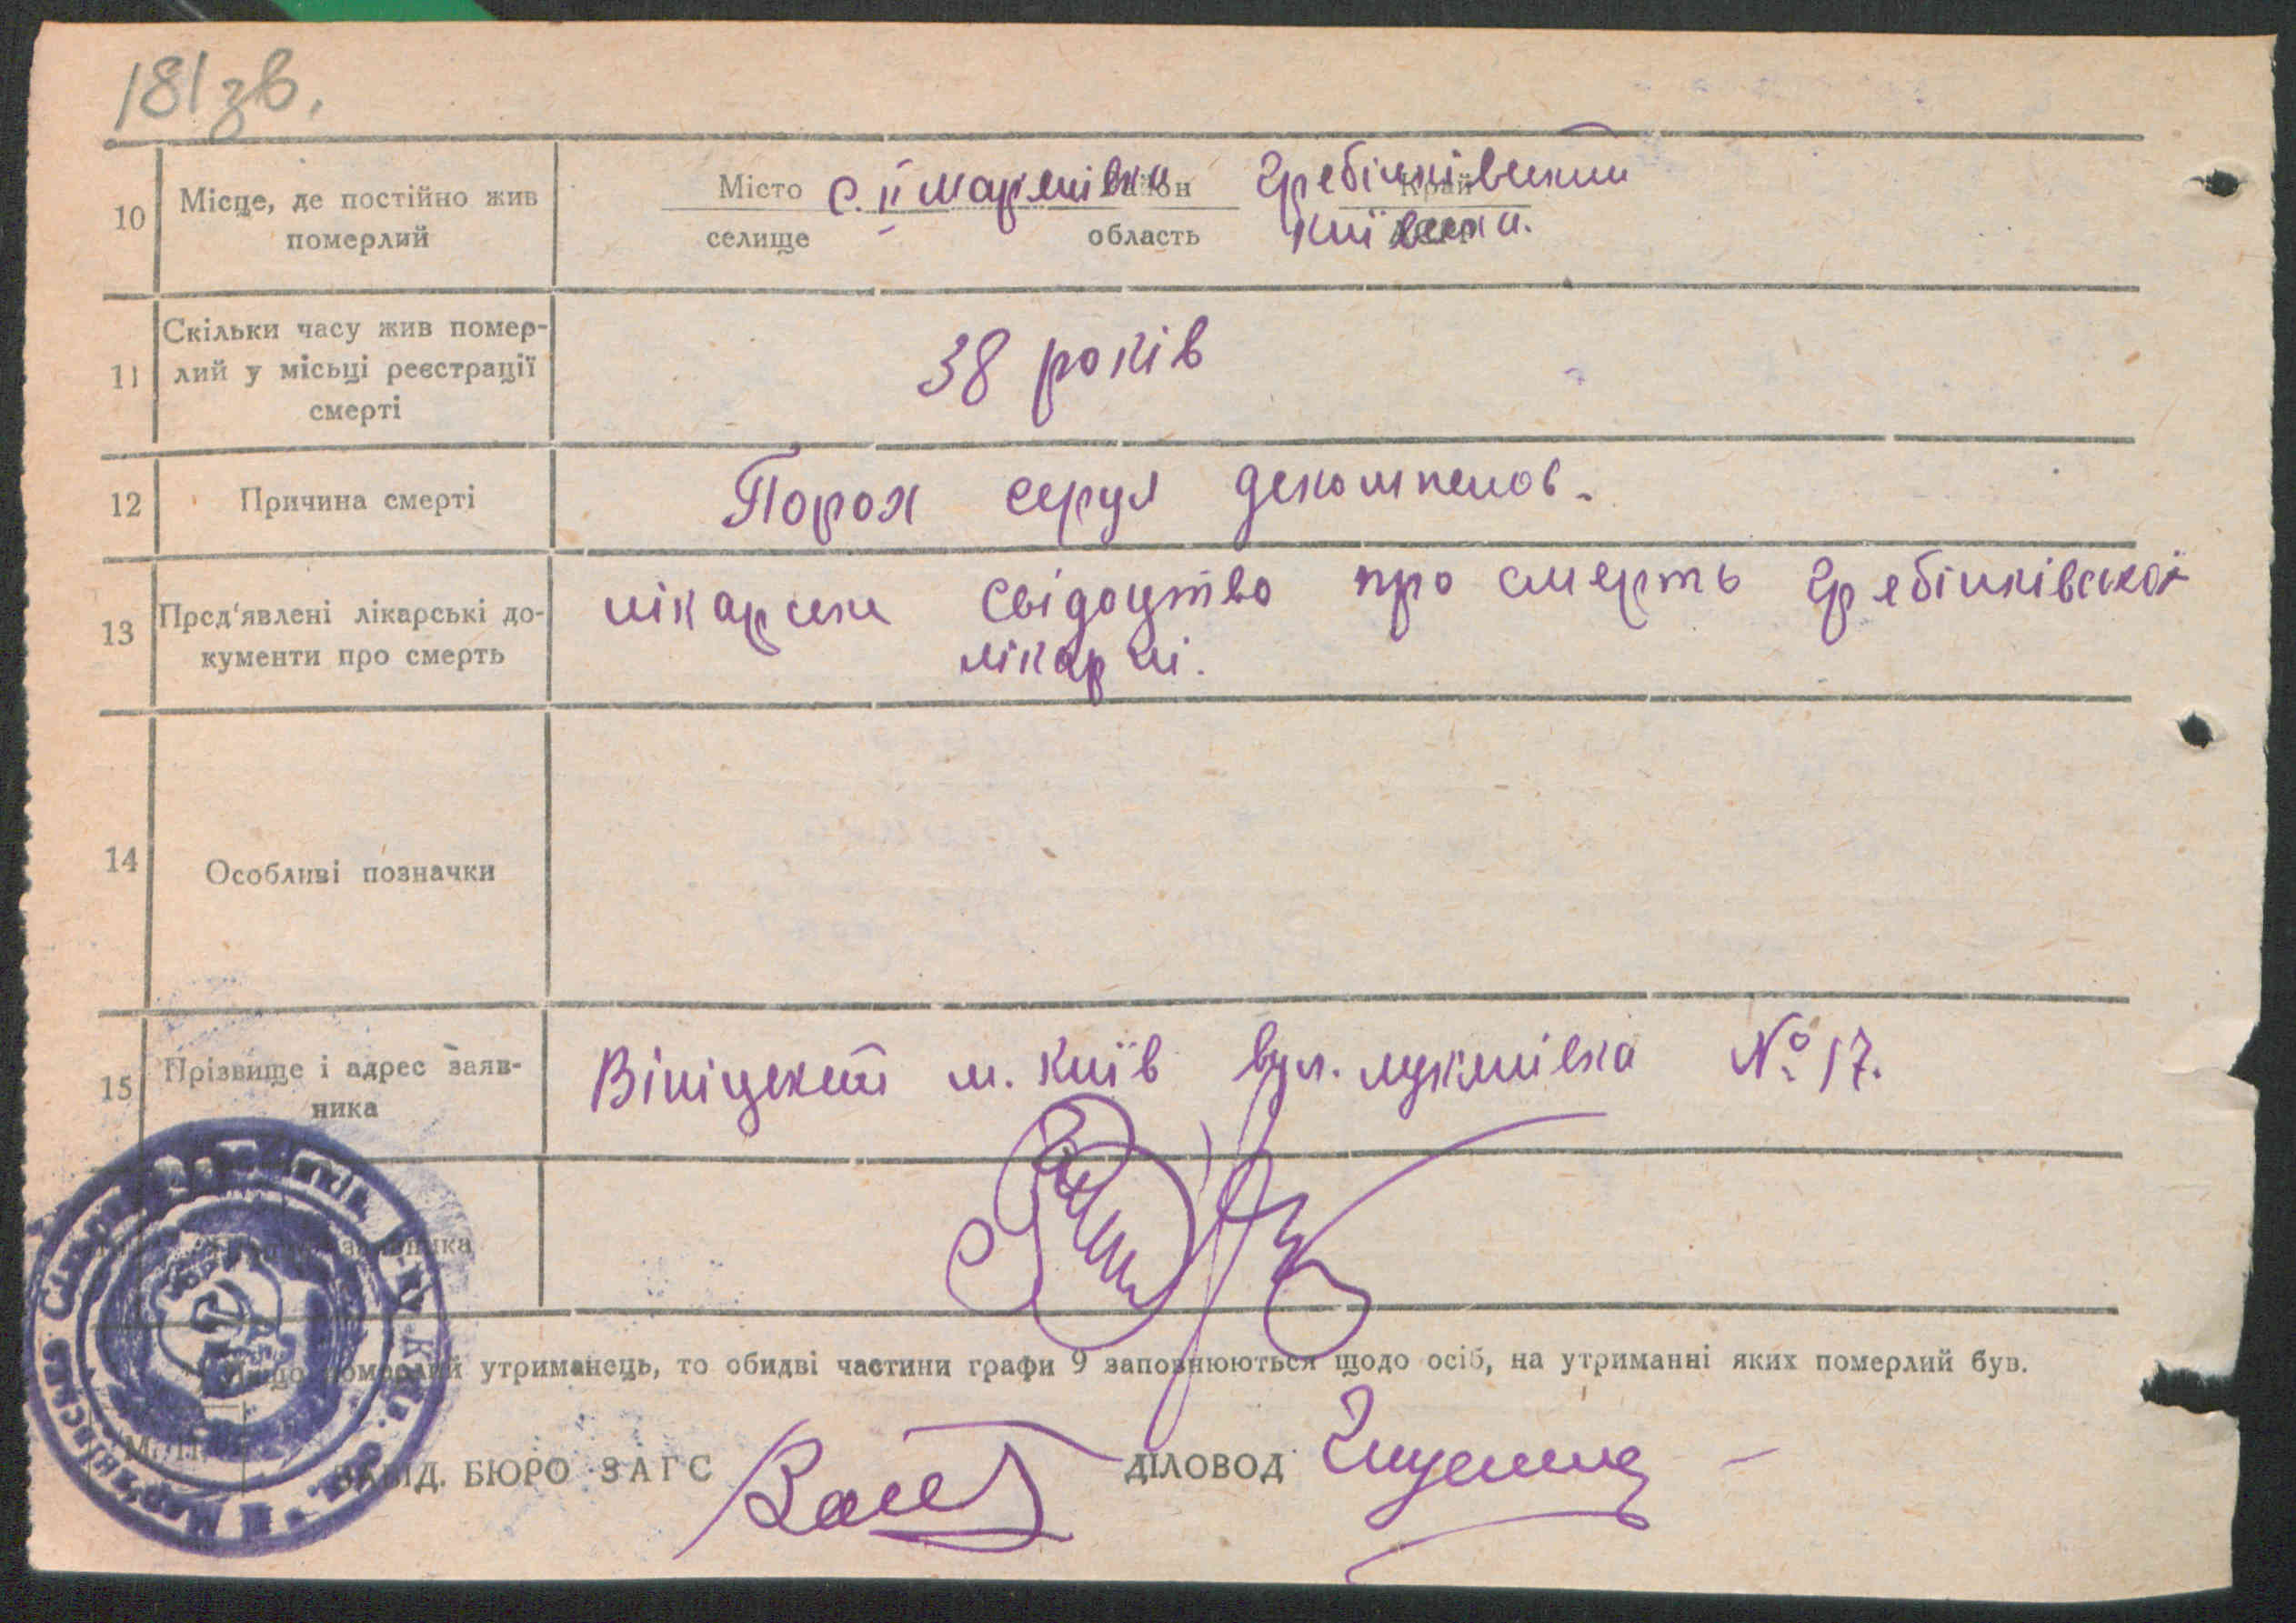 181зв.
10 Місце, де постійно жив померлий
Місто с. ІІ Марянівка район Гребінківський Край
селище область Київська.
11 Скільки часу жив помер-
лий у місьці реєстрації
смерті
38 років
12 Причина смерті
Порок серця декомпенсов.
13 Пред'явлені лікарські до-
кументи про смерть
лікарське свідоцтво про смерть Гребінківської
лікарні.
14 Особливі позначки
15 Прізвище і адрес заяв-
ника
Вініцький м. Київ вул. Лукянівка № 17.
померлий утриманець, то обидві частини графи 9 заповнюються щодо осіб, на утриманні яких померлий був.
М. П.
ЗАВІД. БЮРО ЗАГС ДІЛОВОД